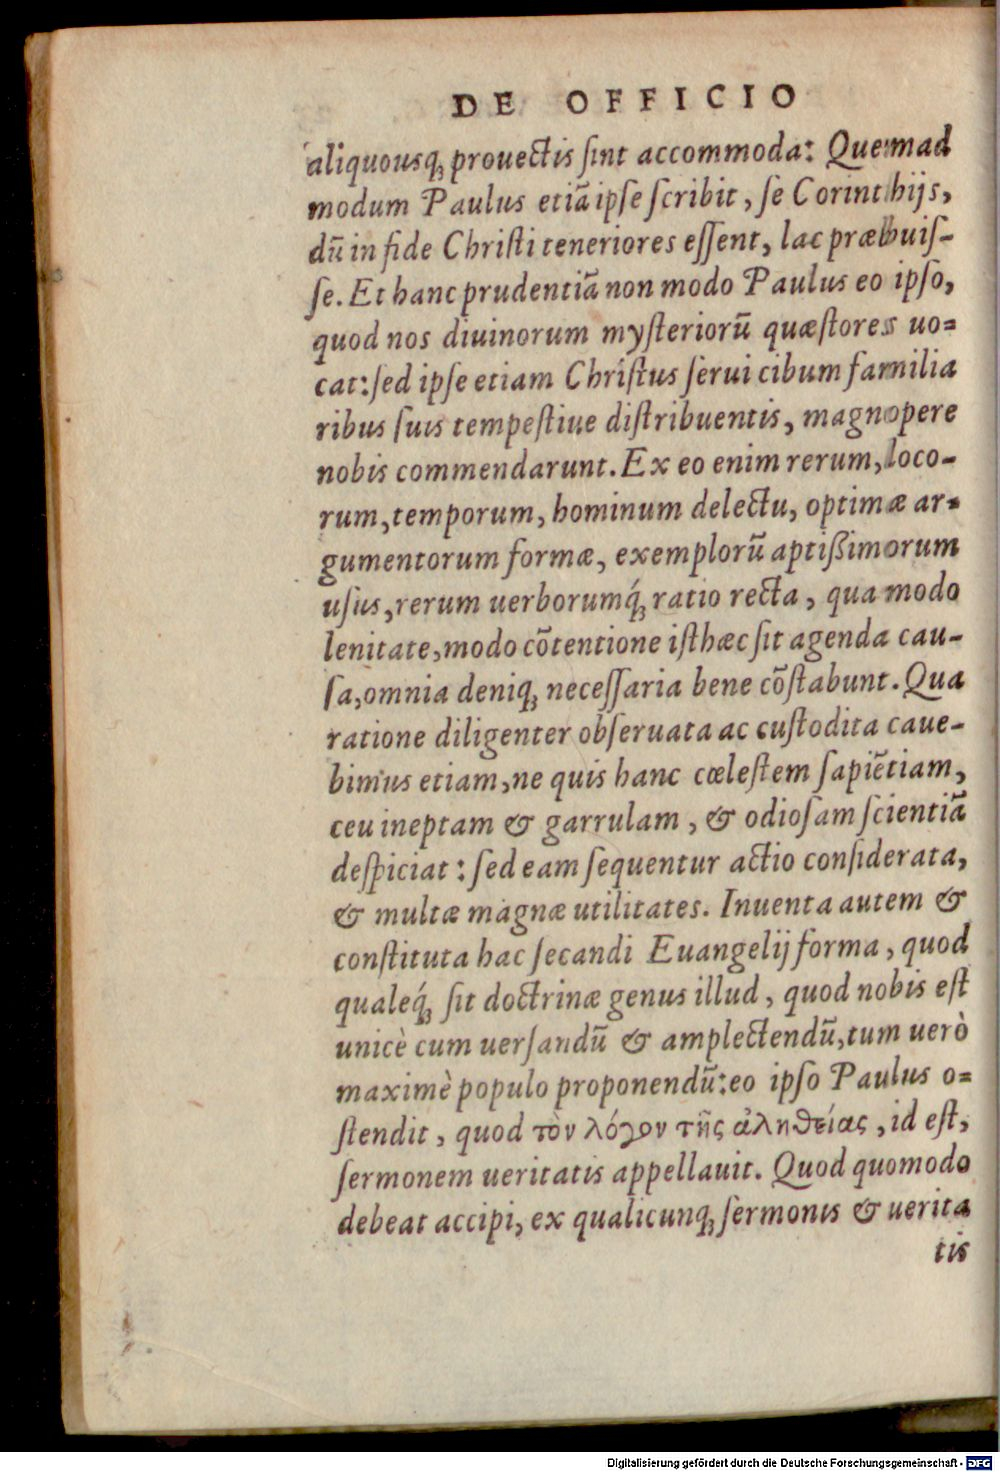 DE OFFICIO
aliquousq́ꝫ prouectis ſint accommoda: Quemad
modum Paulus etiã ipſe ſcribit, ſe Corinthijs,
dũ in fide Chriſti teneriores eſſent, lac præbuiſ-
ſe. Et hanc prudentiã non modo Paulus eo ipſo,
quod nos diuinorum myſteriorũ quæſtores uo=
cat: ſed ipſe etiam Chriſtus ſerui cibum familia
ribus ſuis tempeſtiue diſtribuentis, magnopere
nobis commendarunt. Ex eo enim rerum, loco-
rum, temporum, hominum delectu, optimæ ar=
gumentorum formæ, exemplorũ aptißimorum
uſus, rerum uerborumq́ꝫ ratio recta, qua modo
lenitate, modo cõtentione iſthæc ſit agenda cau-
ſa, omnia deniqꝫ neceſſaria bene cõſtabunt. Qua
ratione diligenter obſeruata ac cuſtodita caue-
bimus etiam, ne quis hanc cœleſtem ſapiẽtiam,
ceu ineptam & garrulam, & odioſam ſcientiã
deſpiciat: ſed eam ſequentur actio conſiderata,
& multæ magnæ utilitates. Inuenta autem &
conſtituta hac ſecandi Euangelij forma, quod
qualeq́ꝫ ſit doctrinæ genus illud, quod nobis eſt
unicè cum uerſandũ & amplectendũ, tum uerò
maximè populo proponendũ: eo ipſo Paulus o=
ſtendit, quod τὸν λόγον τῆς ἀληθείας, id eſt,
ſermonem ueritatis appellauit. Quod quomodo
debeat accipi, ex qualicunqꝫ ſermonis & uerita
tis
Digitalisierung gefördert durch die Deutsche Forschungsgemeinschaft - DFG